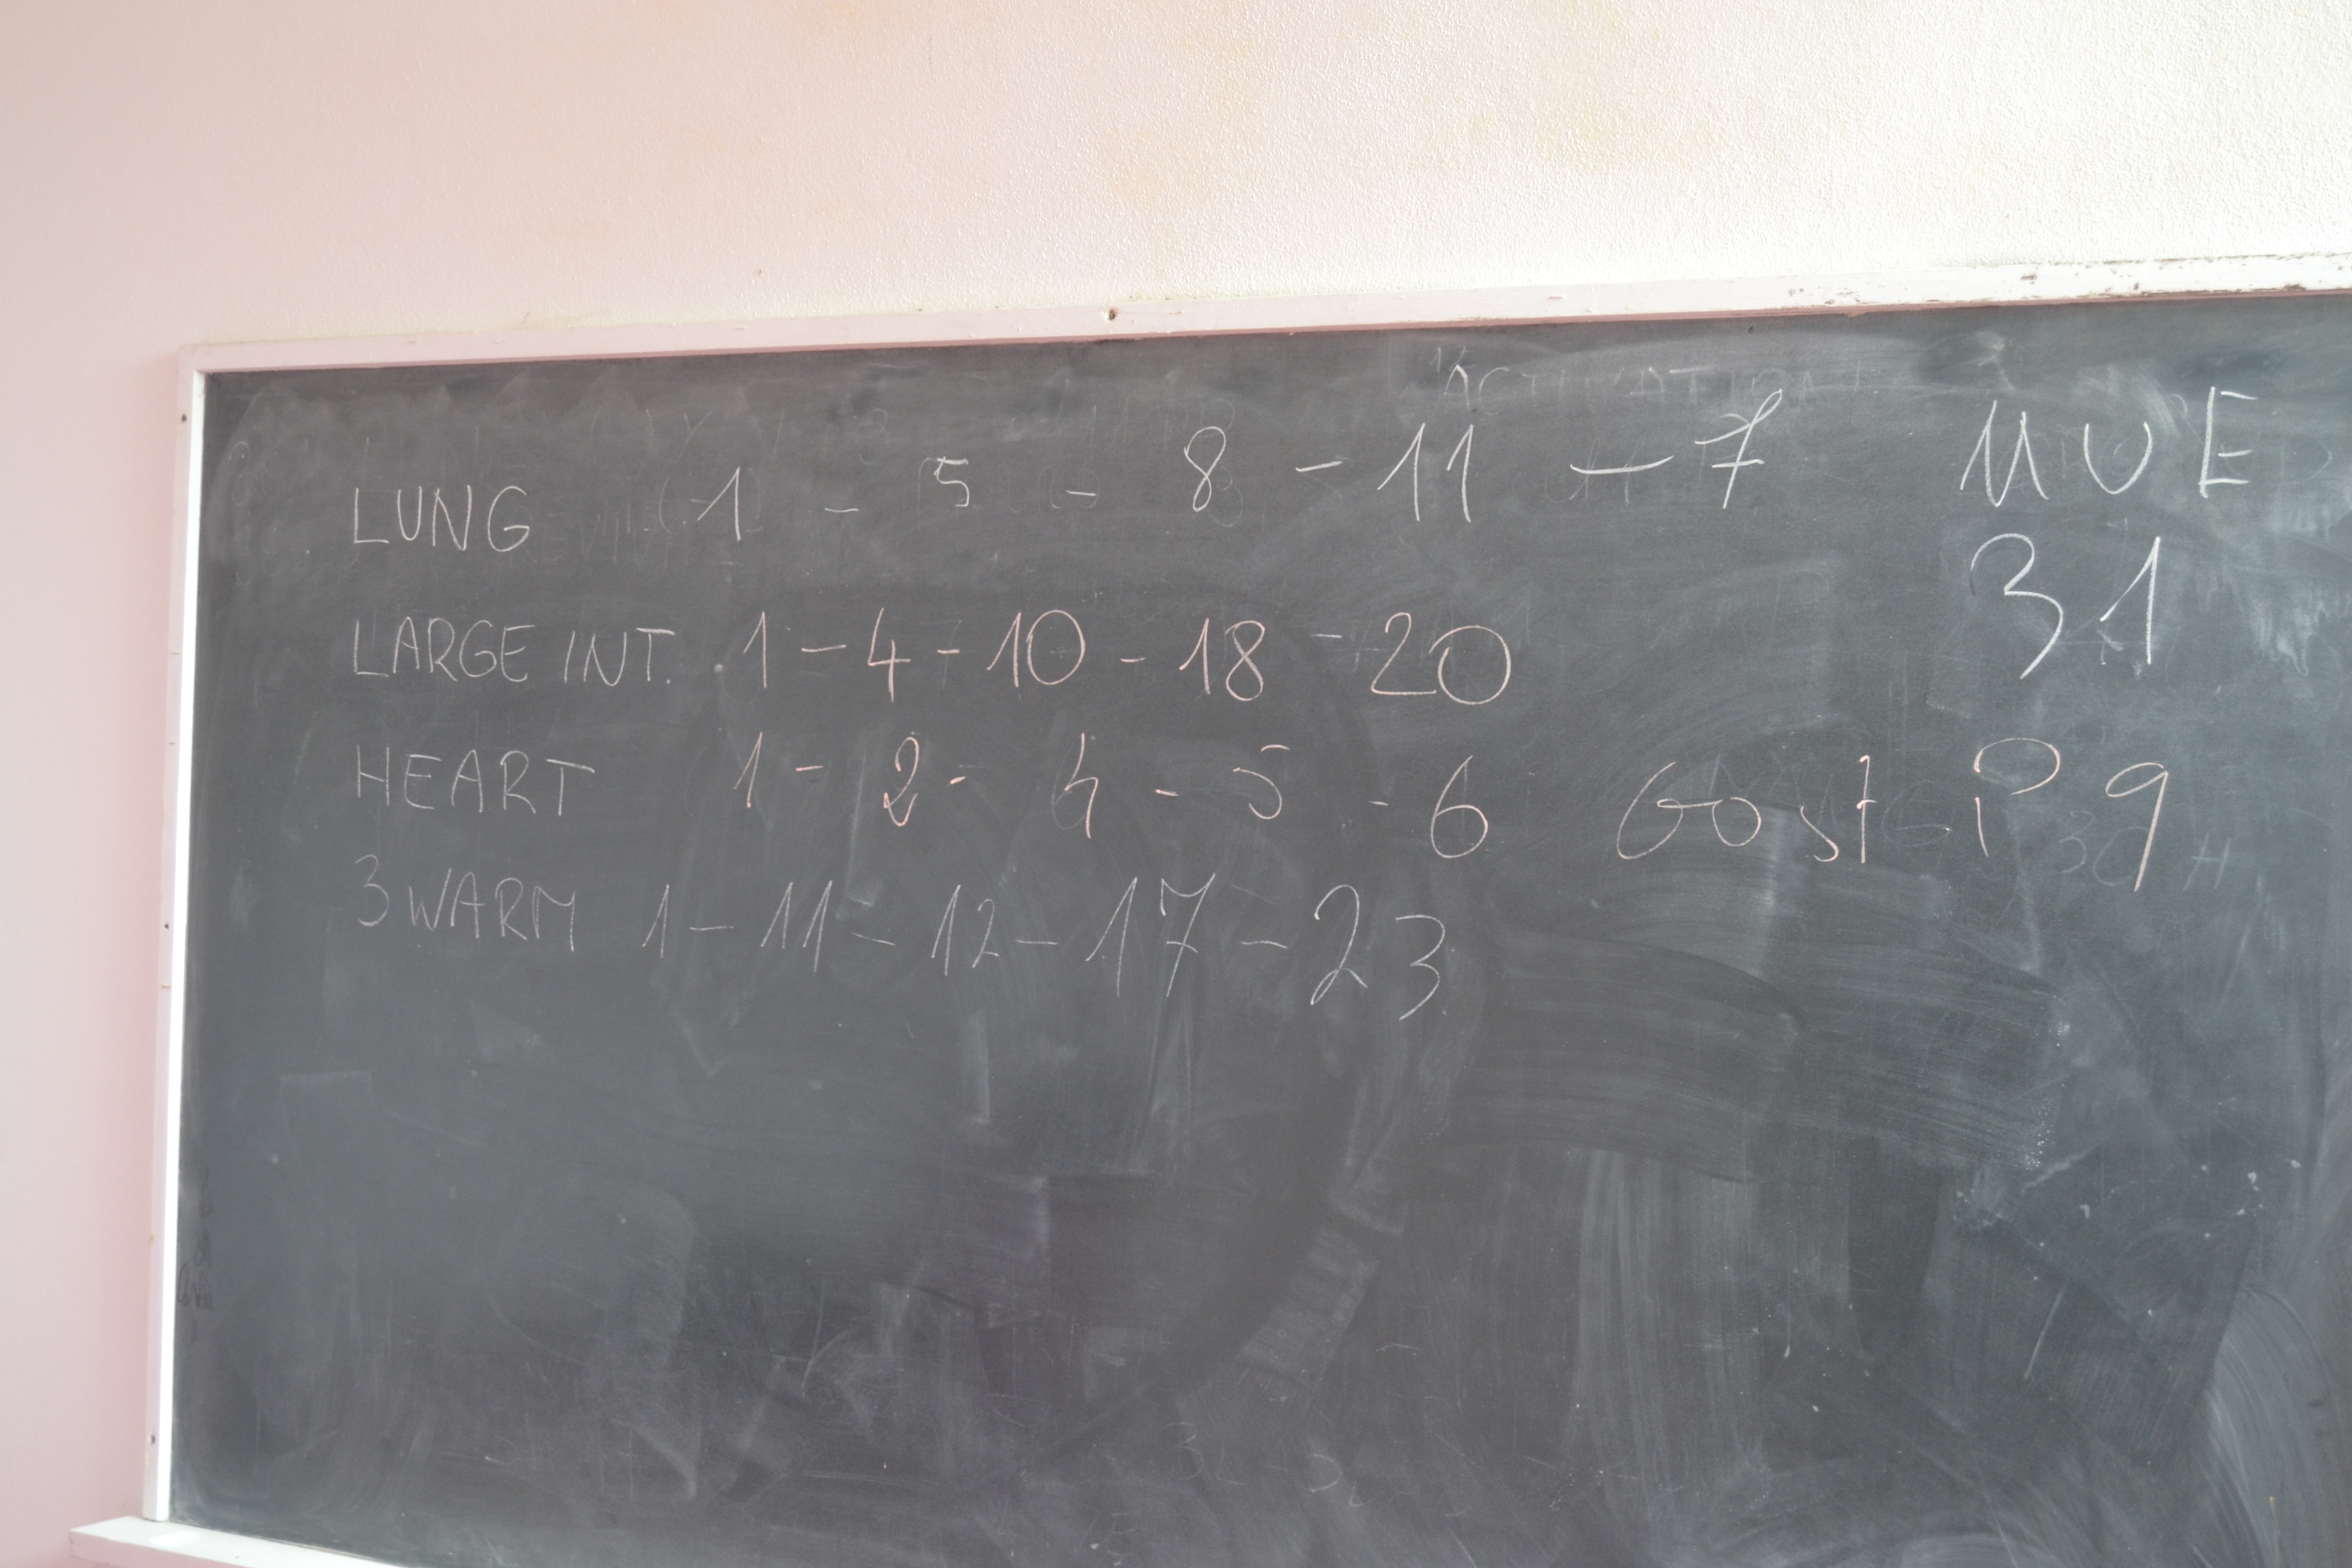 LUNG 1 - 5 - 8 - 11 - 7 MUE
31
LARGE INT. 1 - 4 - 10 - 18 - 20
HEART 1 - 2 - 4 - 5 - 6 9
3 WARM 1 - 11 - 12 - 17 - 23